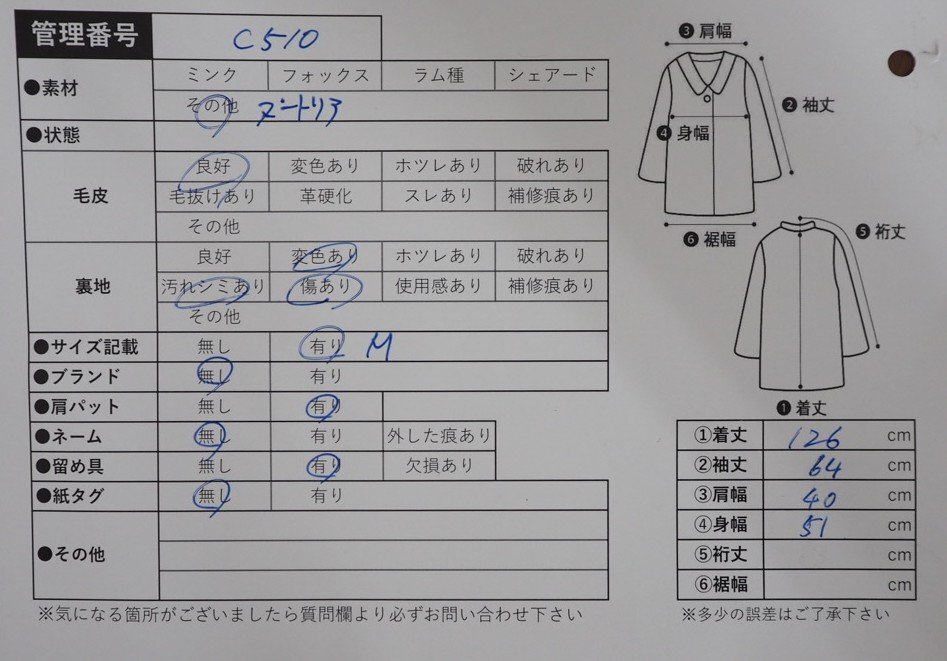 管理番号 C510
●素材 ミンク フォックス ラム種 シェアード
その他 ヌートリア
●状態
毛皮 良好 変色あり ホツレあり 破れあり
毛抜けあり 革硬化 スレあり 補修痕あり
その他
裏地 良好 変色あり ホツレあり 破れあり
汚れシミあり 傷あり 使用感あり 補修痕あり
その他
●サイズ記載 無し 有り M
●ブランド 無し 有り
●肩パット 無し 有り
●ネーム 無し 有り 外した痕あり
●留め具 無し 有り 欠損あり
●紙タグ 無し 有り
●その他
※気になる箇所がございましたら質問欄より必ずお問い合わせ下さい
❸肩幅
❷袖丈
❹身幅
❻裄幅
❺裄丈
❶着丈
①着丈 126 cm
②袖丈 64 cm
③肩幅 40 cm
④身幅 51 cm
⑤裄丈 cm
⑥裾幅 cm
※多少の誤差はご了承下さい